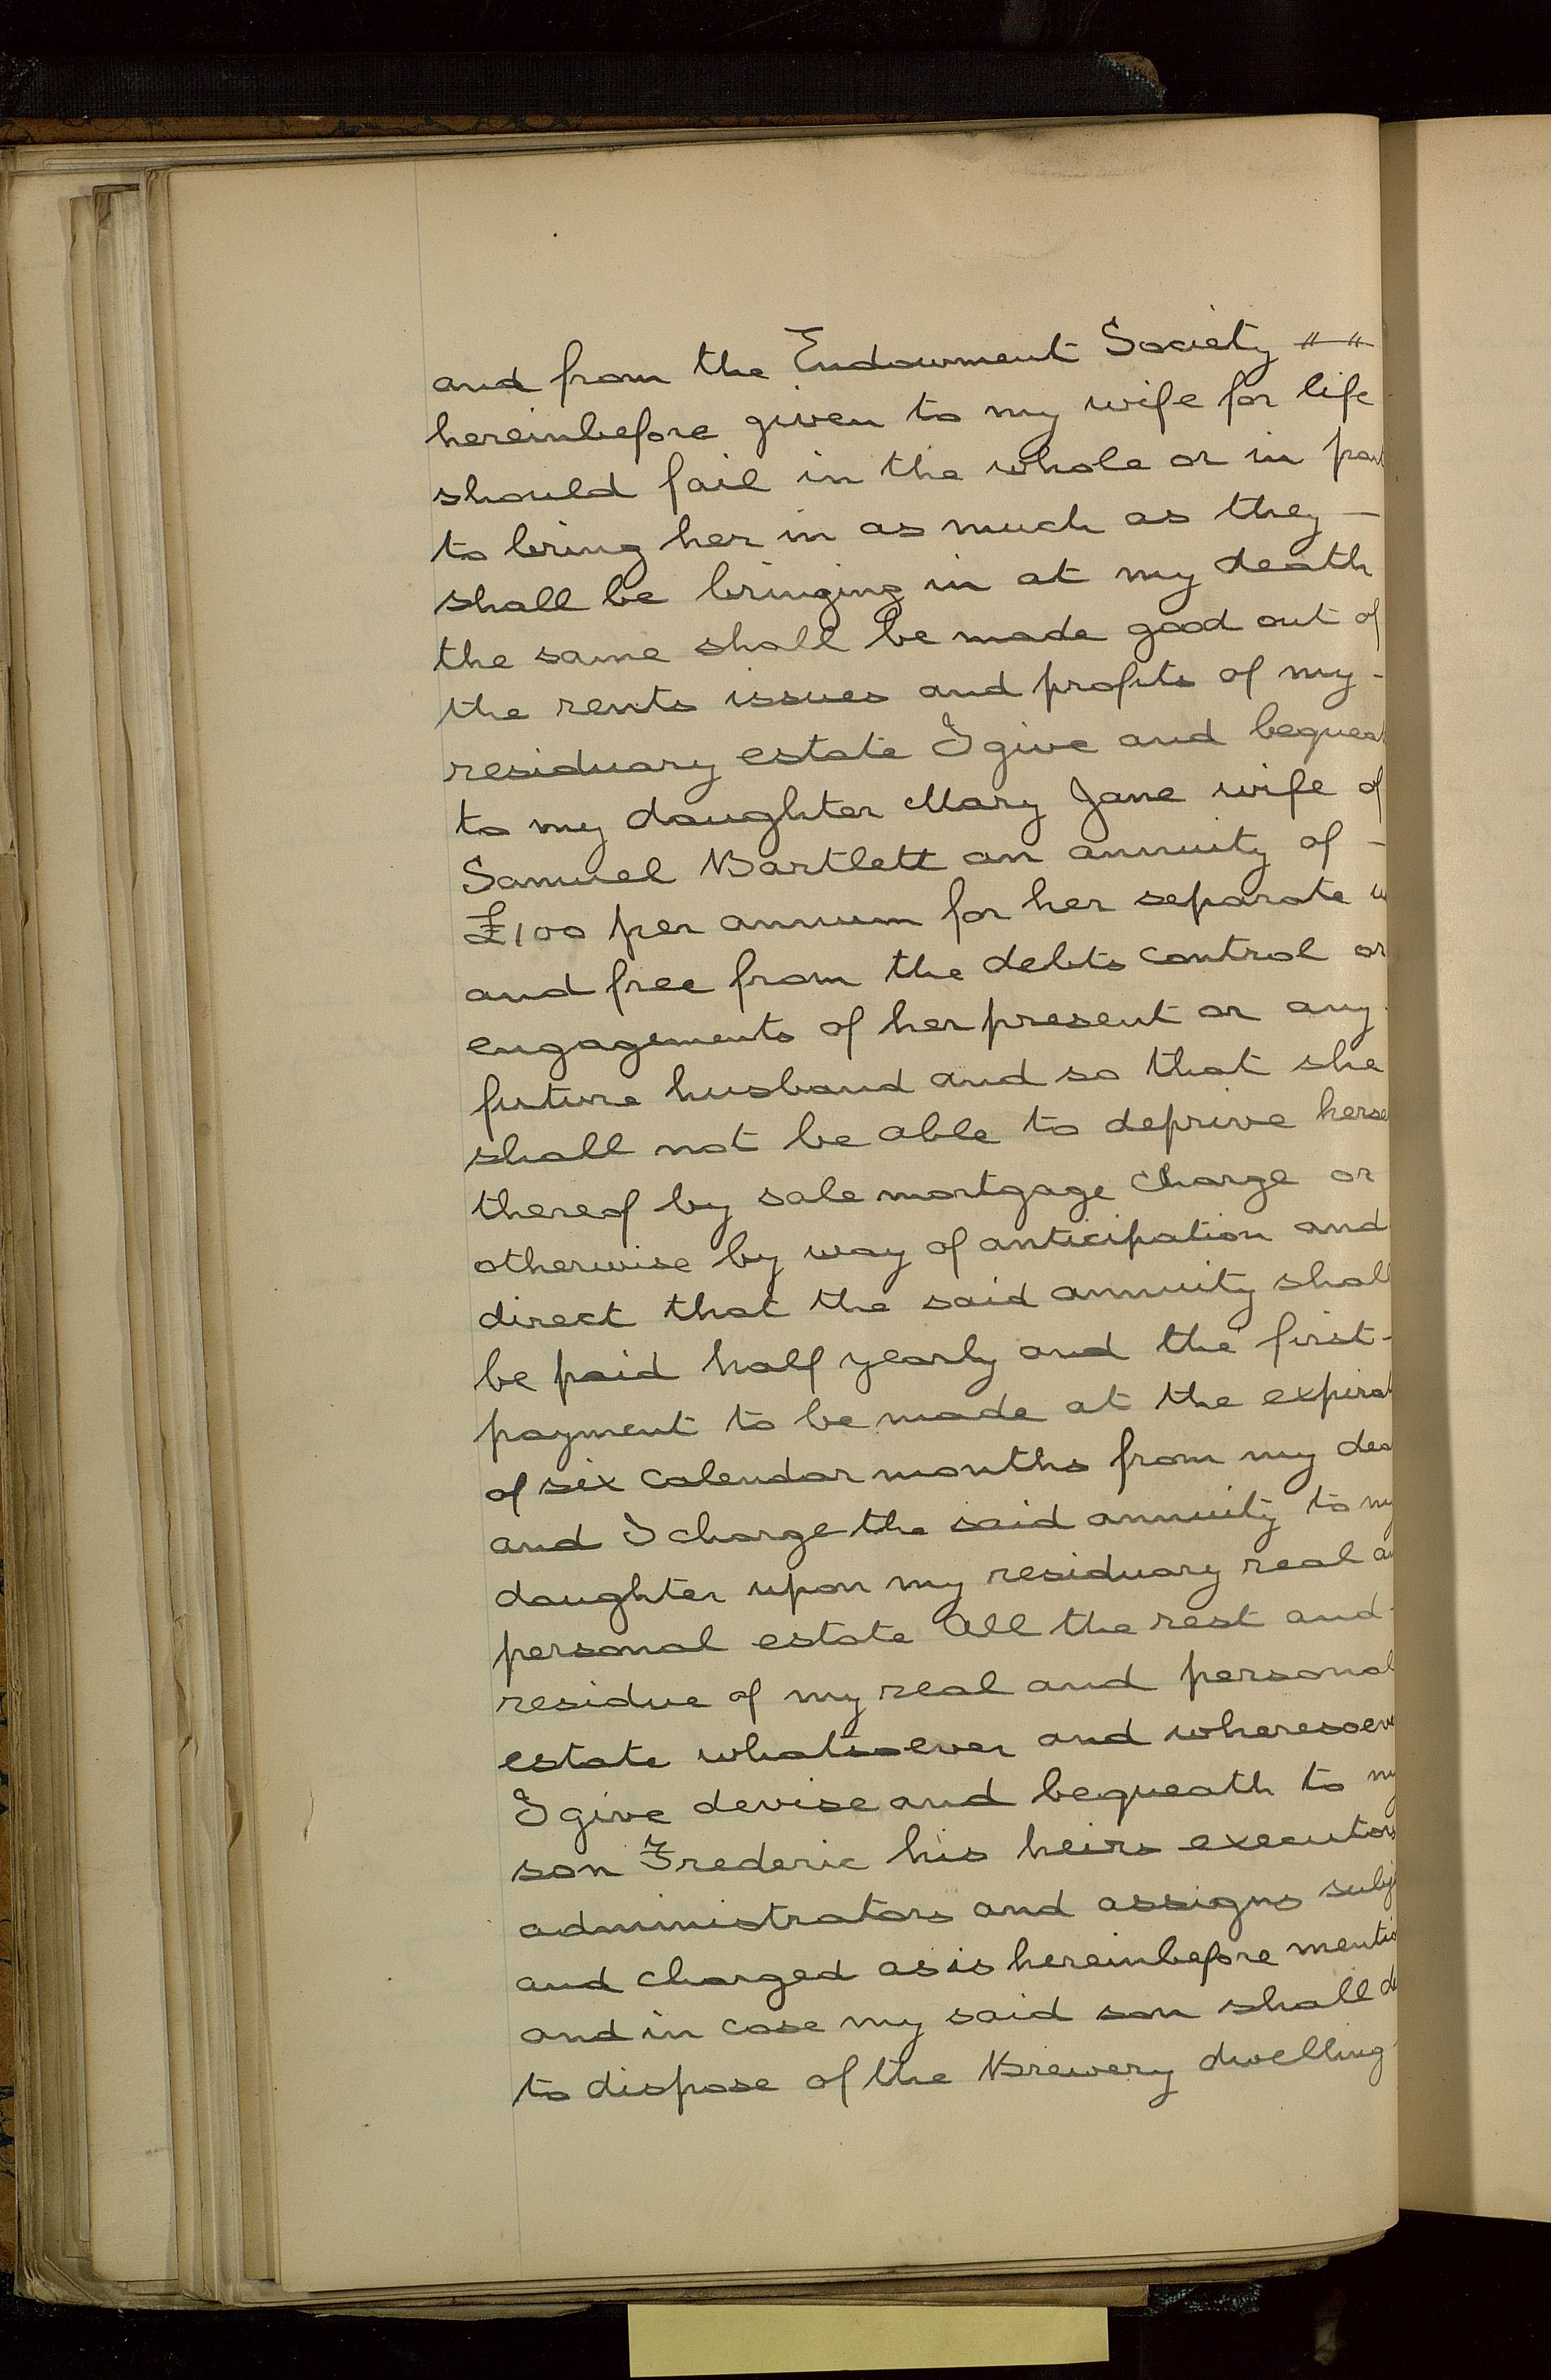 and from the Endowment Society " "
hereinbefore given to my wife for life
should fail in the whole or in part
to bring her in as much as they —
shall be bringing in at my death
the same shall be made good out of
the rents issues and profits of my -
residuary estate I give and bequeat
to my daughter Mary Jane wife of
Samuel Bartlett an annuity of -
£100 per annum for her separate u
and free from the debts control or
engagements of her present or any
future husband and so that she
shall not be able to deprive herse
thereof by sale mortgage charge or
otherwise by way of anticipation and
direct that the said annuity shall
be paid half yearly and the first -
payment to be made at the expirat
of six calendar months from my dea
and I charge the said annuity to my
daughter upon my residuary real an
personal estate All the rest and -
residue of my real and personal
estate whatsoever and wheresoeve
I give devise and bequeath to my
son Frederic his heirs executors
administrators and assigns subje
and charged as is hereinbefore mentio
and in case my said son shall de
to dispose of the Brewery dwelling